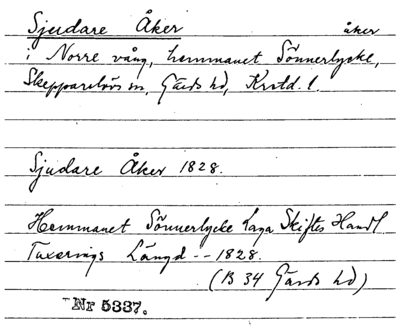 Sjudare Åker åker
i Norre vång, hemmanet Sönnerlycke,
Skepparslövs sn, Gärds hd, Krstd. l.
Sjudare Åker 1828.
Hemmanet Sönnerlycke Laga Skiftes Handl
Taxerings Längd -- 1828.
(B 34 Gärds hd)
Nr 5337.